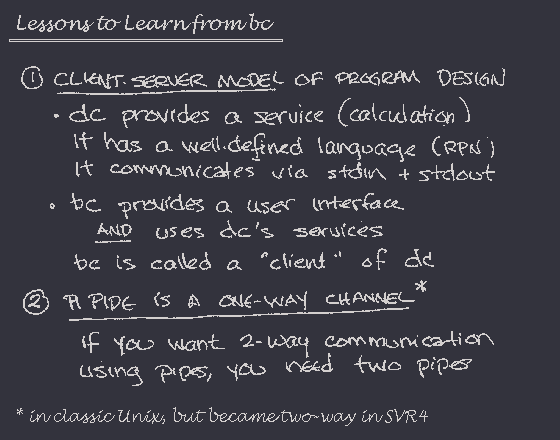 Lessons to Learn from bc
① CLIENT-SERVER MODEL OF PROGRAM DESIGN
• dc provides a service (calculation)
it has a well-defined language (RPN)
it communicates via stdin + stdout
• bc provides a user interface
AND uses dc's services
bc is called a "client" of dc
② A PIPE IS A ONE-WAY CHANNEL*
if you want 2-way communication
using pipes, you need two pipes
* in classic Unix, but became two-way in SVR4